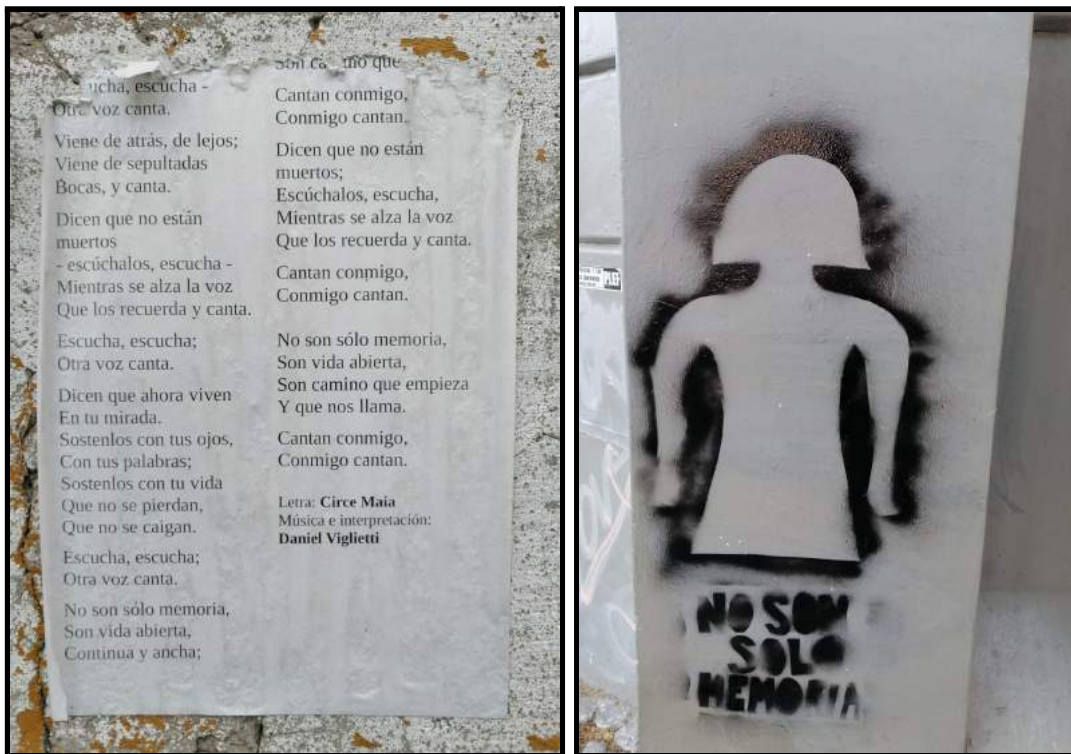 escucha -
Otra voz canta.
Viene de atrás, de lejos;
Viene de sepultadas
Bocas, y canta.
Dicen que no están
muertos
- escúchalos, escucha -
Mientras se alza la voz
Que los recuerda y canta.
Escucha, escucha;
Otra voz canta.
Dicen que ahora viven
En tu mirada.
Sostenlos con tus ojos,
Con tus palabras;
Sostenlos con tu vida
Que no se pierdan,
Que no se caigan.
Escucha, escucha;
Otra voz canta.
No son sólo memoria,
Son vida abierta,
Continua y ancha;
Son camino que
Cantan conmigo,
Conmigo cantan.
Dicen que no están
muertos;
Escúchalos, escucha,
Mientras se alza la voz
Que los recuerda y canta.
Cantan conmigo,
Conmigo cantan.
No son sólo memoria,
Son vida abierta,
Son camino que empieza
Y que nos llama.
Cantan conmigo,
Conmigo cantan.
Letra: Circe Maia
Música e interpretación:
Daniel Viglietti
PLEF
NO SON
SOLO
MEMORIA